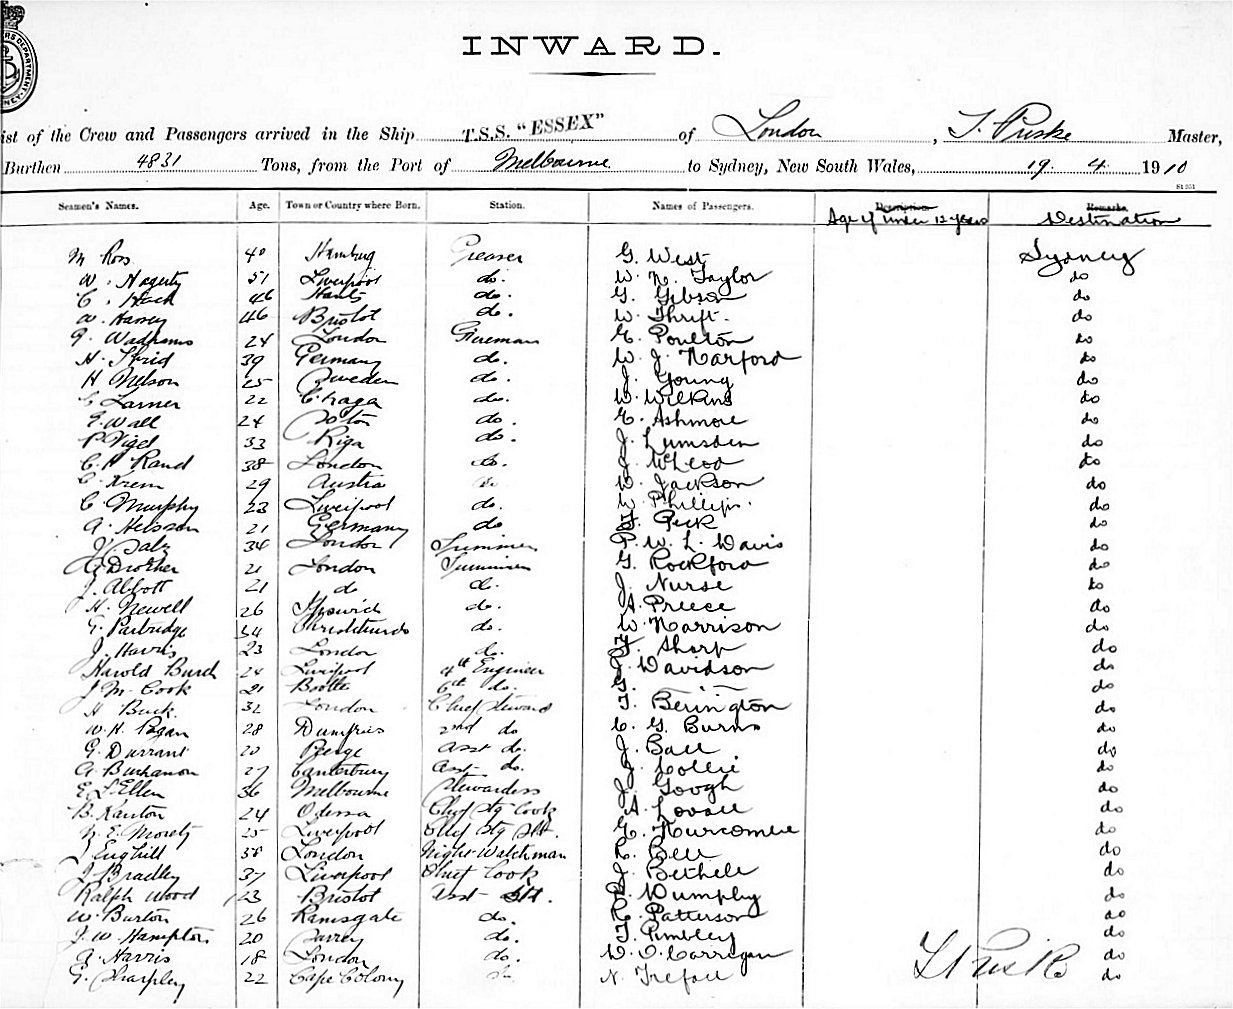 INWARD.
ist of the Crew and Passengers arrived in the Ship T.S.S. "ESSEX" of London, Master,
Burthen 4831 Tons, from the Port of Melbourne to Sydney, New South Wales, 19. 4. 1910
Seamen's Names. Age. Town or Country where Born. Station. Names of Passengers. Description Remarks
Age if under 12 years Destination
M Ross 40 Hamburg Greaser G. West Sydney
W. Hagerty 51 Liverpool do. W. N. Taylor do
C. 46 Hants do. G. Gibson do
W. Harvey 46 Bristol do. W. Thrift. do
24 London Fireman E. Poulton do
H. 39 Germany do. W. J. Harford do
H Nelson 25 Sweden do. J. Young do
C Larner 22 do. W. Wilkins do
E. Wall 24 do. E. Ashmore do
P 33 Riga do. J. Lumsden do
C. H Rand 38 London do. J. McLeod do
C. 29 Austra do W. Jackson do
C. Murphy 23 Liverpool do. W Phillips. do
A. 21 Germany do F. Peck do
J. 34 London P. W. L. Davis do
21 London Trimmer G. Rockford do
J. Abbott 21 do do. J. Nurse do
H. Newell 26 Ipswich do. A. Preece do
G. Partridge 34 Christchurch do. W. Harrison do
J. Harris 23 London do. F. Sharp do
Harold Burd 24 Liverpool 4th Engineer J. Davidson do
J M. Cook 21 Bootle 6th do. G. do
H Buck. 32 London Chief Steward T. Berington do
W. H. Pagan 28 Dumfries 2nd do C. G. Burns do
G. Durrant 20 Penge Asst do. J. Ball do
A. Buchanan 27 Canterbury Asst do. J. Collie do
E. L. Ellen 36 Melbourne Stewardess J. Gough do
B. Kanton 24 Odessa Chief Stg Cook A. Lovell do
N. E. Morety 25 Liverpool Chief Stg Std. E. Hurcombe do
38 London Night Watchman R. Bell do
J Bradley 37 Liverpool Chief Cook J. Bethell do
Ralph Wood 23 Bristol Asst Std. Dumphy do
W. Burton 26 Ramsgate do. R. Patterson do
J. W. Hampton 20 Surrey do. T. Pimbley do
A. Harris 18 London do. D. O. Corrigan do
G. Sharpley 22 Cape Colony do N. Trefall do